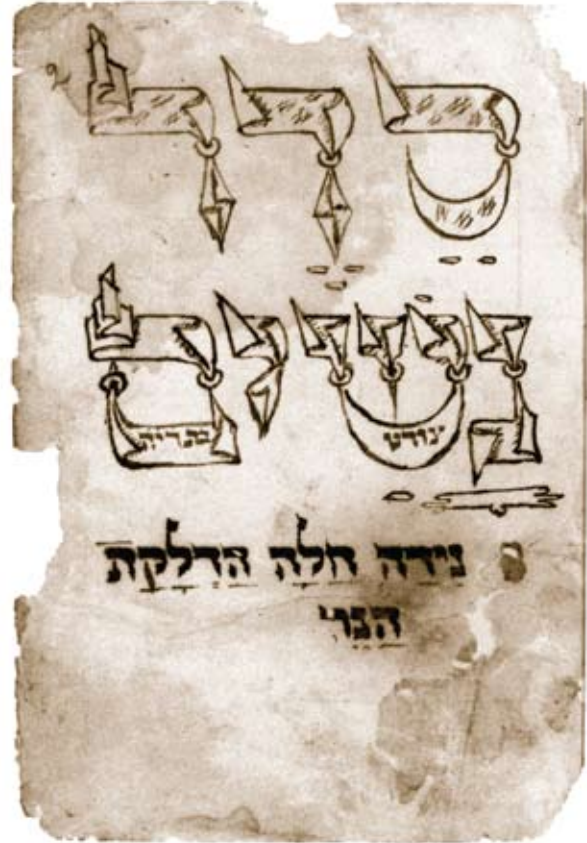 סֵדֶר
נָשׁים
נִידָה חַלָה הַדְלָקַת
הַנֵר